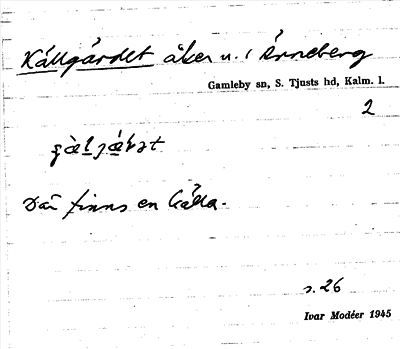 Källgärdet åker u. i Ånneberg
Gamleby sn, S. Tjusts hd, Kalm. l.
2
Där finns en källa.
s. 26
Ivar Modéer 1945